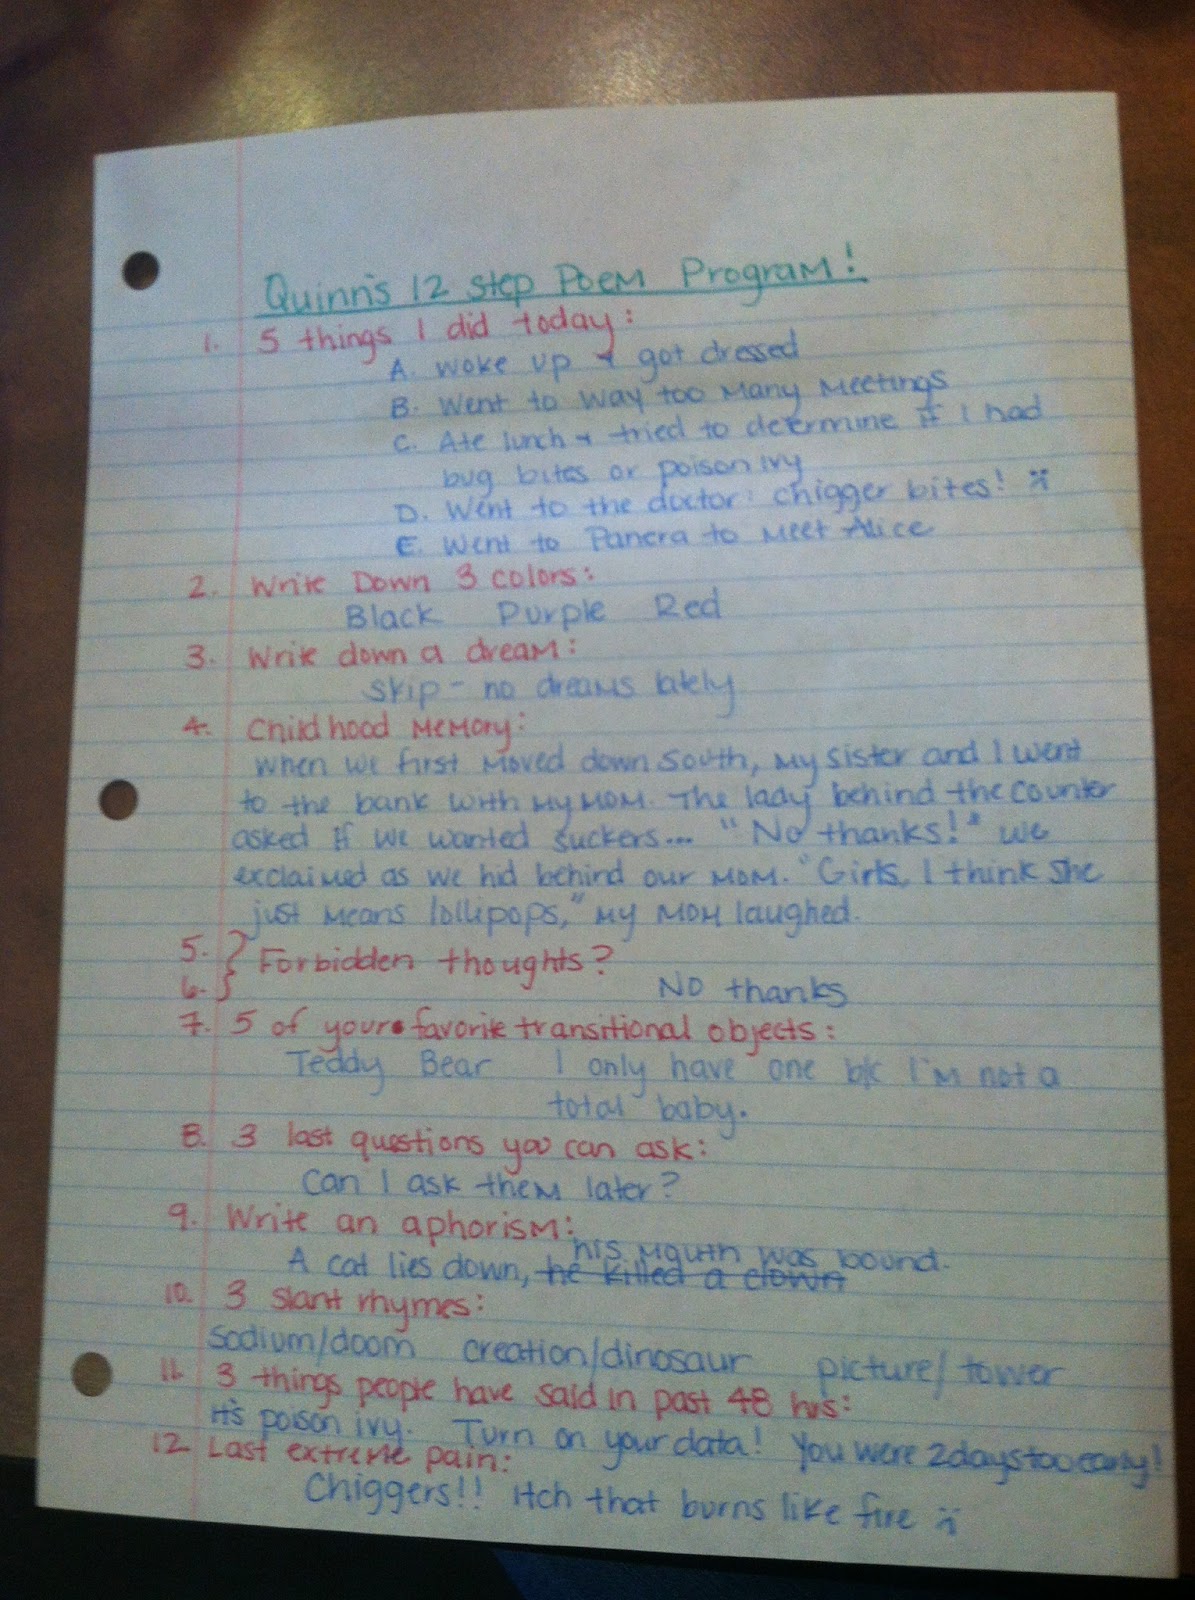 Quinn's 12 Step Poem Program!
1. 5 things I did today:
A. Woke up + got dressed
B. Went to way too many meetings
C. Ate lunch + tried to determine if I had
bug bites or poison ivy
D. Went to the doctor: chigger bites! :(
E. Went to Panera to meet Alice
2. Write Down 3 colors:
Black Purple Red
3. Write down a dream:
Skip - no dreams lately
4. Childhood Memory:
When we first moved down South, my sister and I went
to the bank with my mom. The lady behind the counter
asked if we wanted suckers... "No thanks!" we
exclaimed as we hid behind our mom. "Girls, I think she
just means lollipops," my mom laughed.
5. } Forbidden thoughts?
6. } No thanks
7. 5 of your favorite transitional objects:
Teddy Bear I only have one b/c I'm not a
total baby.
8. 3 last questions you can ask:
Can I ask them later?
9. Write an aphorism:
his mouth was bound.
A cat lies down, he killed a clown
10. 3 slant rhymes:
Sodium/doom creation/dinosaur picture/tower
11. 3 things people have said in past 48 hrs:
It's poison ivy. Turn on your data! You were 2 days too early!
12 Last extreme pain:
Chiggers!! itch that burns like fire :(